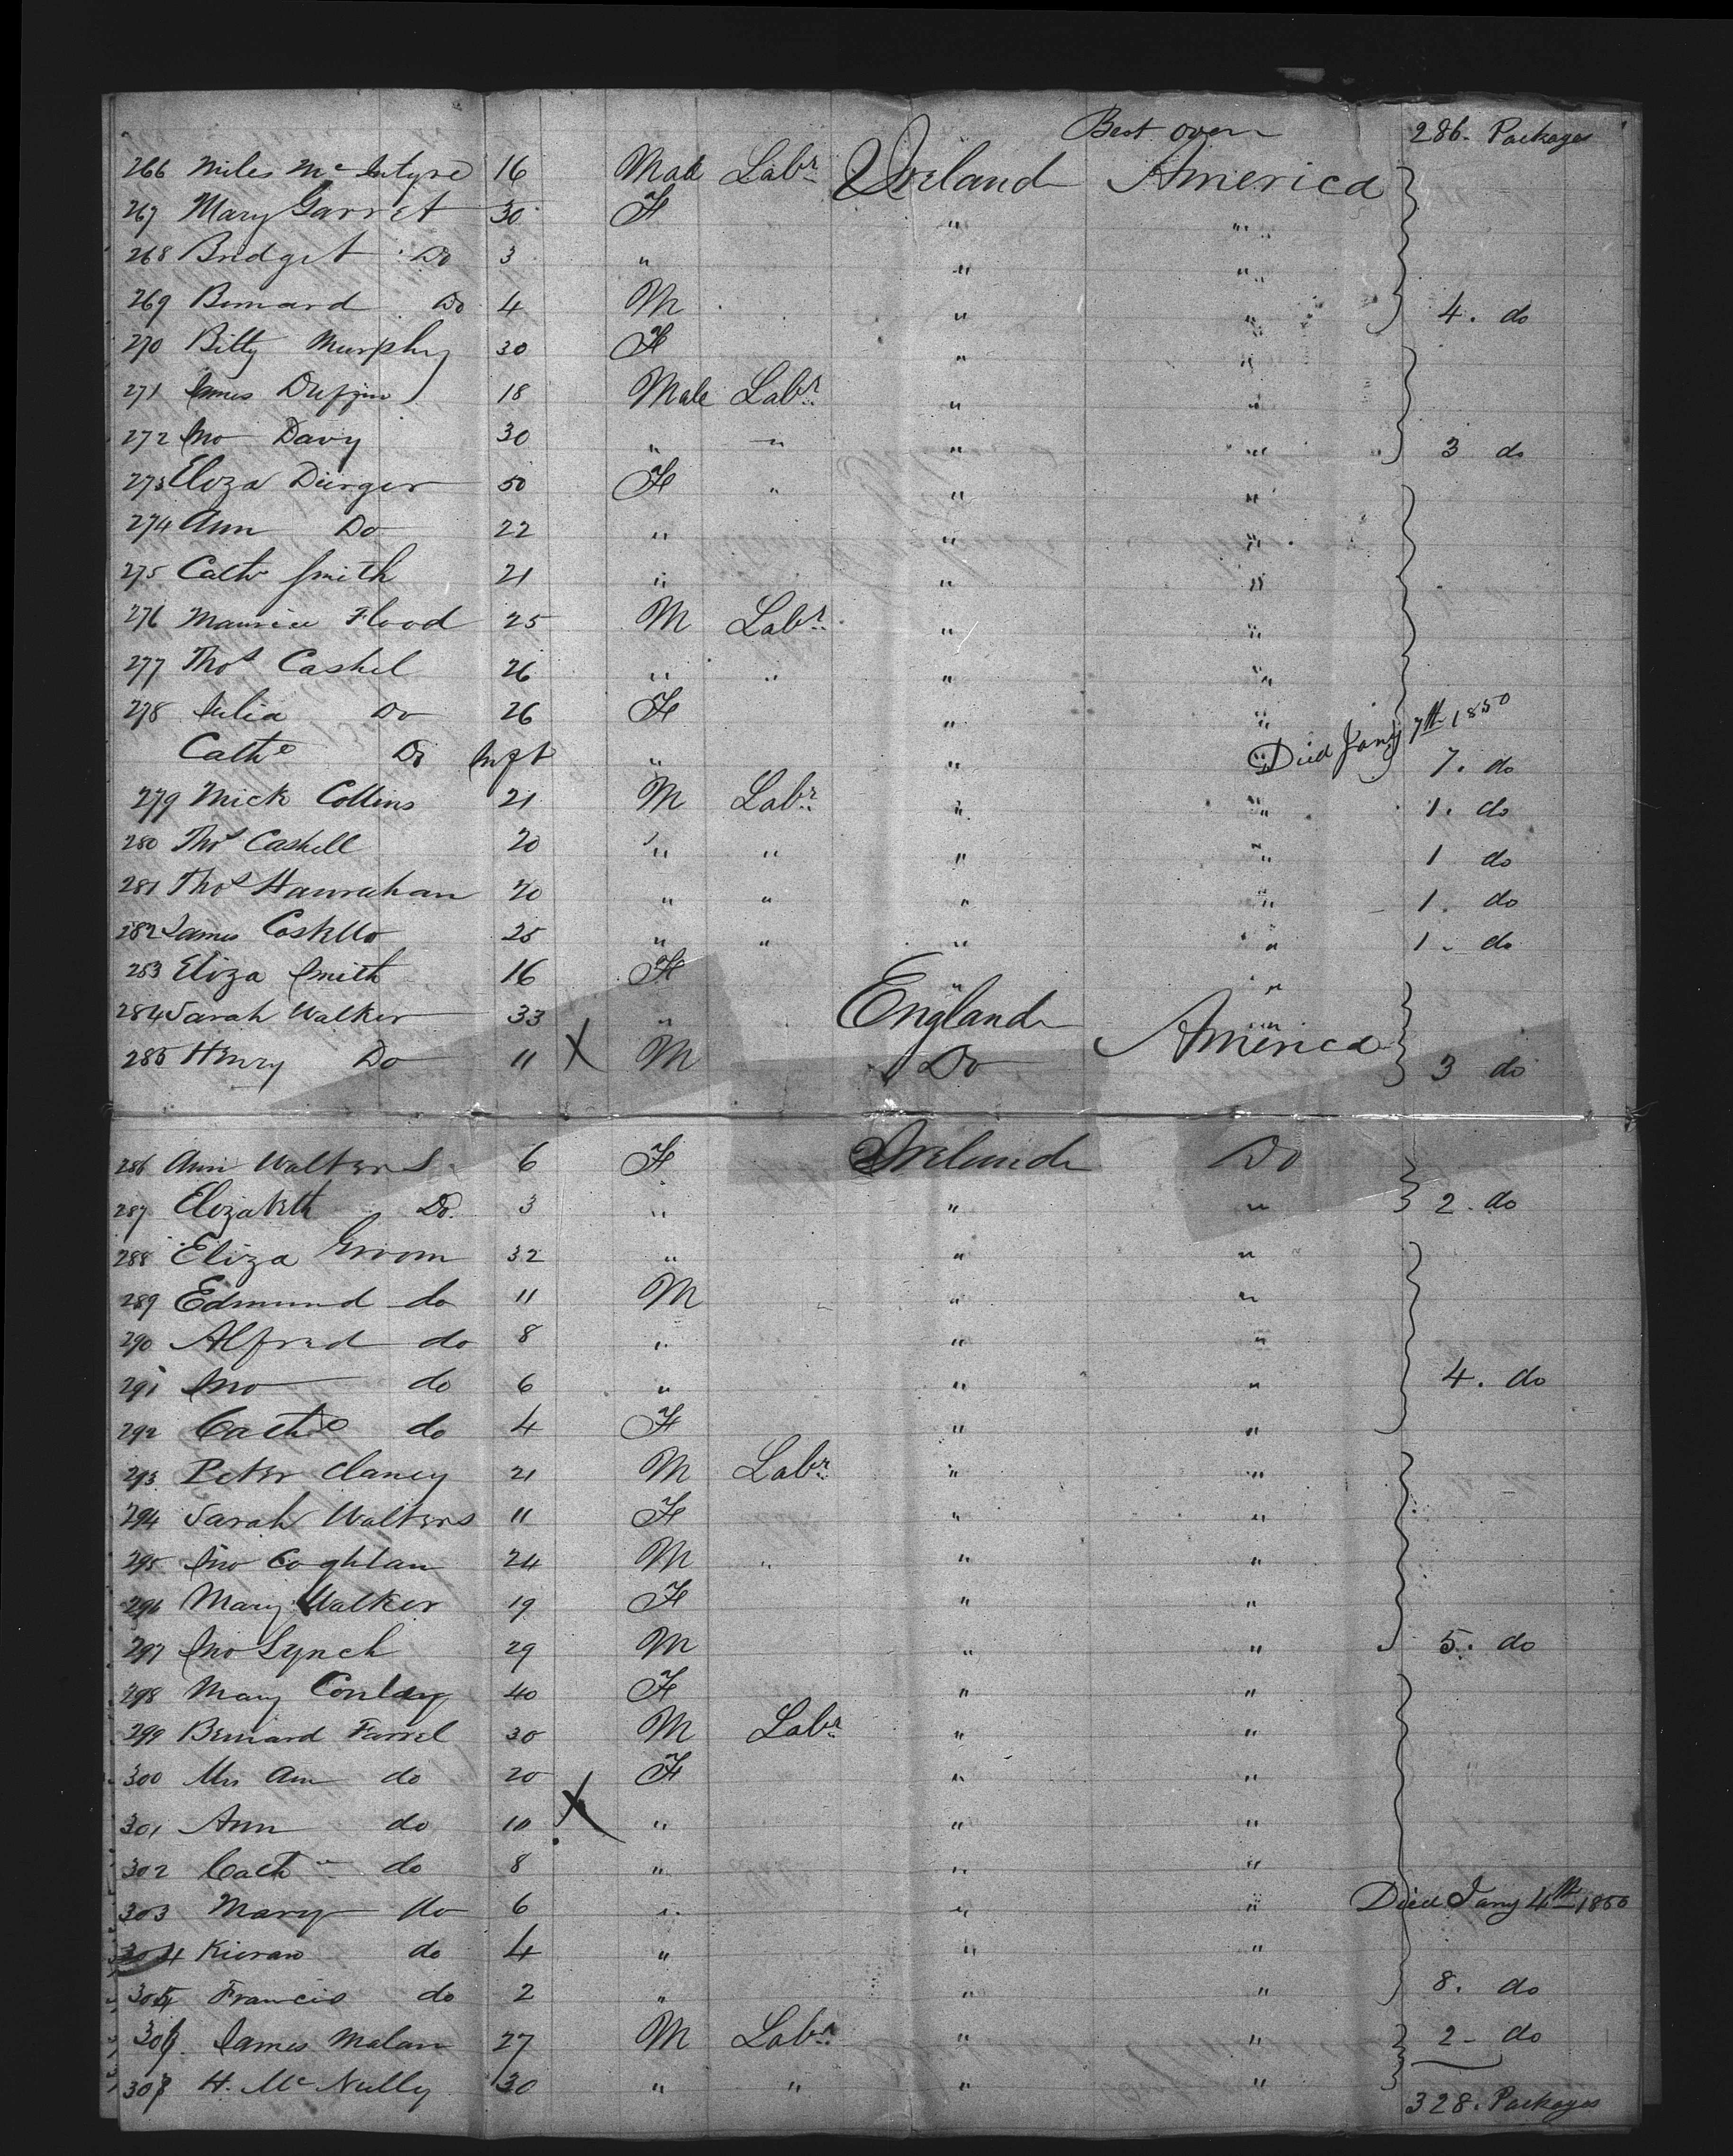 Best over 286. Packages
266 Miles Mc Intyre 16 Male Labr Ireland America
267 Mary Garret 30 F " "
268 Bridget Do 3 " " "
269 Bernard Do 4 M " " 4. do
270 Bitty Murphy 30 F " "
271 James Duffin 18 Male Labr " "
272 Jno Davy 30 " " " " 3 do
273 Eliza Durger 50 F " " "
274 Ann Do 22 " " "
275 Cathe Smith 21 " " "
276 Maurice Flood 25 M Labr " "
277 Thos Cashel 26 " " " "
278 Julia Do 26 F " "
Cathe Do Inft " " " Died Jany 7th 1850 7. do
279 Mick Collins 21 M Labr " " 1. do
280 Thos Cashell 20 " " " " 1 do
281 Thos Hanrahan 20 " " " " 1. do
282 James Costello 25 " " " " 1 - do
283 Eliza Smith 16 F " "
284 Sarah Walker 33 " England "
285 Henry Do 11 X M Do America 3 do
286 Ann Walters 6 F Ireland Do
287 Elizabeth Do 3 " " " 2 - do
288 Eliza Groom 32 " " "
289 Edmund do 11 M " "
290 Alfred do 8 " " "
291 Jno do 6 " " " 4. do
292 Cathe do 4 F " "
293 Peter Clancy 21 M Labr " "
294 Sarah Walters 11 F " "
295 Jno Coghlan 24 M " " "
296 Mary Walker 19 F " "
297 Jno Lynch 29 M " " 5. do
298 Mary Conlay 40 F " "
299 Bernard Farrel 30 M Labr " "
300 Mrs Ann do 20 F " "
301 Ann do 10 X " " "
302 Cath do 8 " " "
303 Mary do 6 " " " Died Jany 4th 1850
304 Kieran do 4 " " "
305 Francis do 2 " " " 8. do
306 James Malan 27 M Labr " " 2 - do
307 H. Mc Nully 30 " " " "
328. Packages